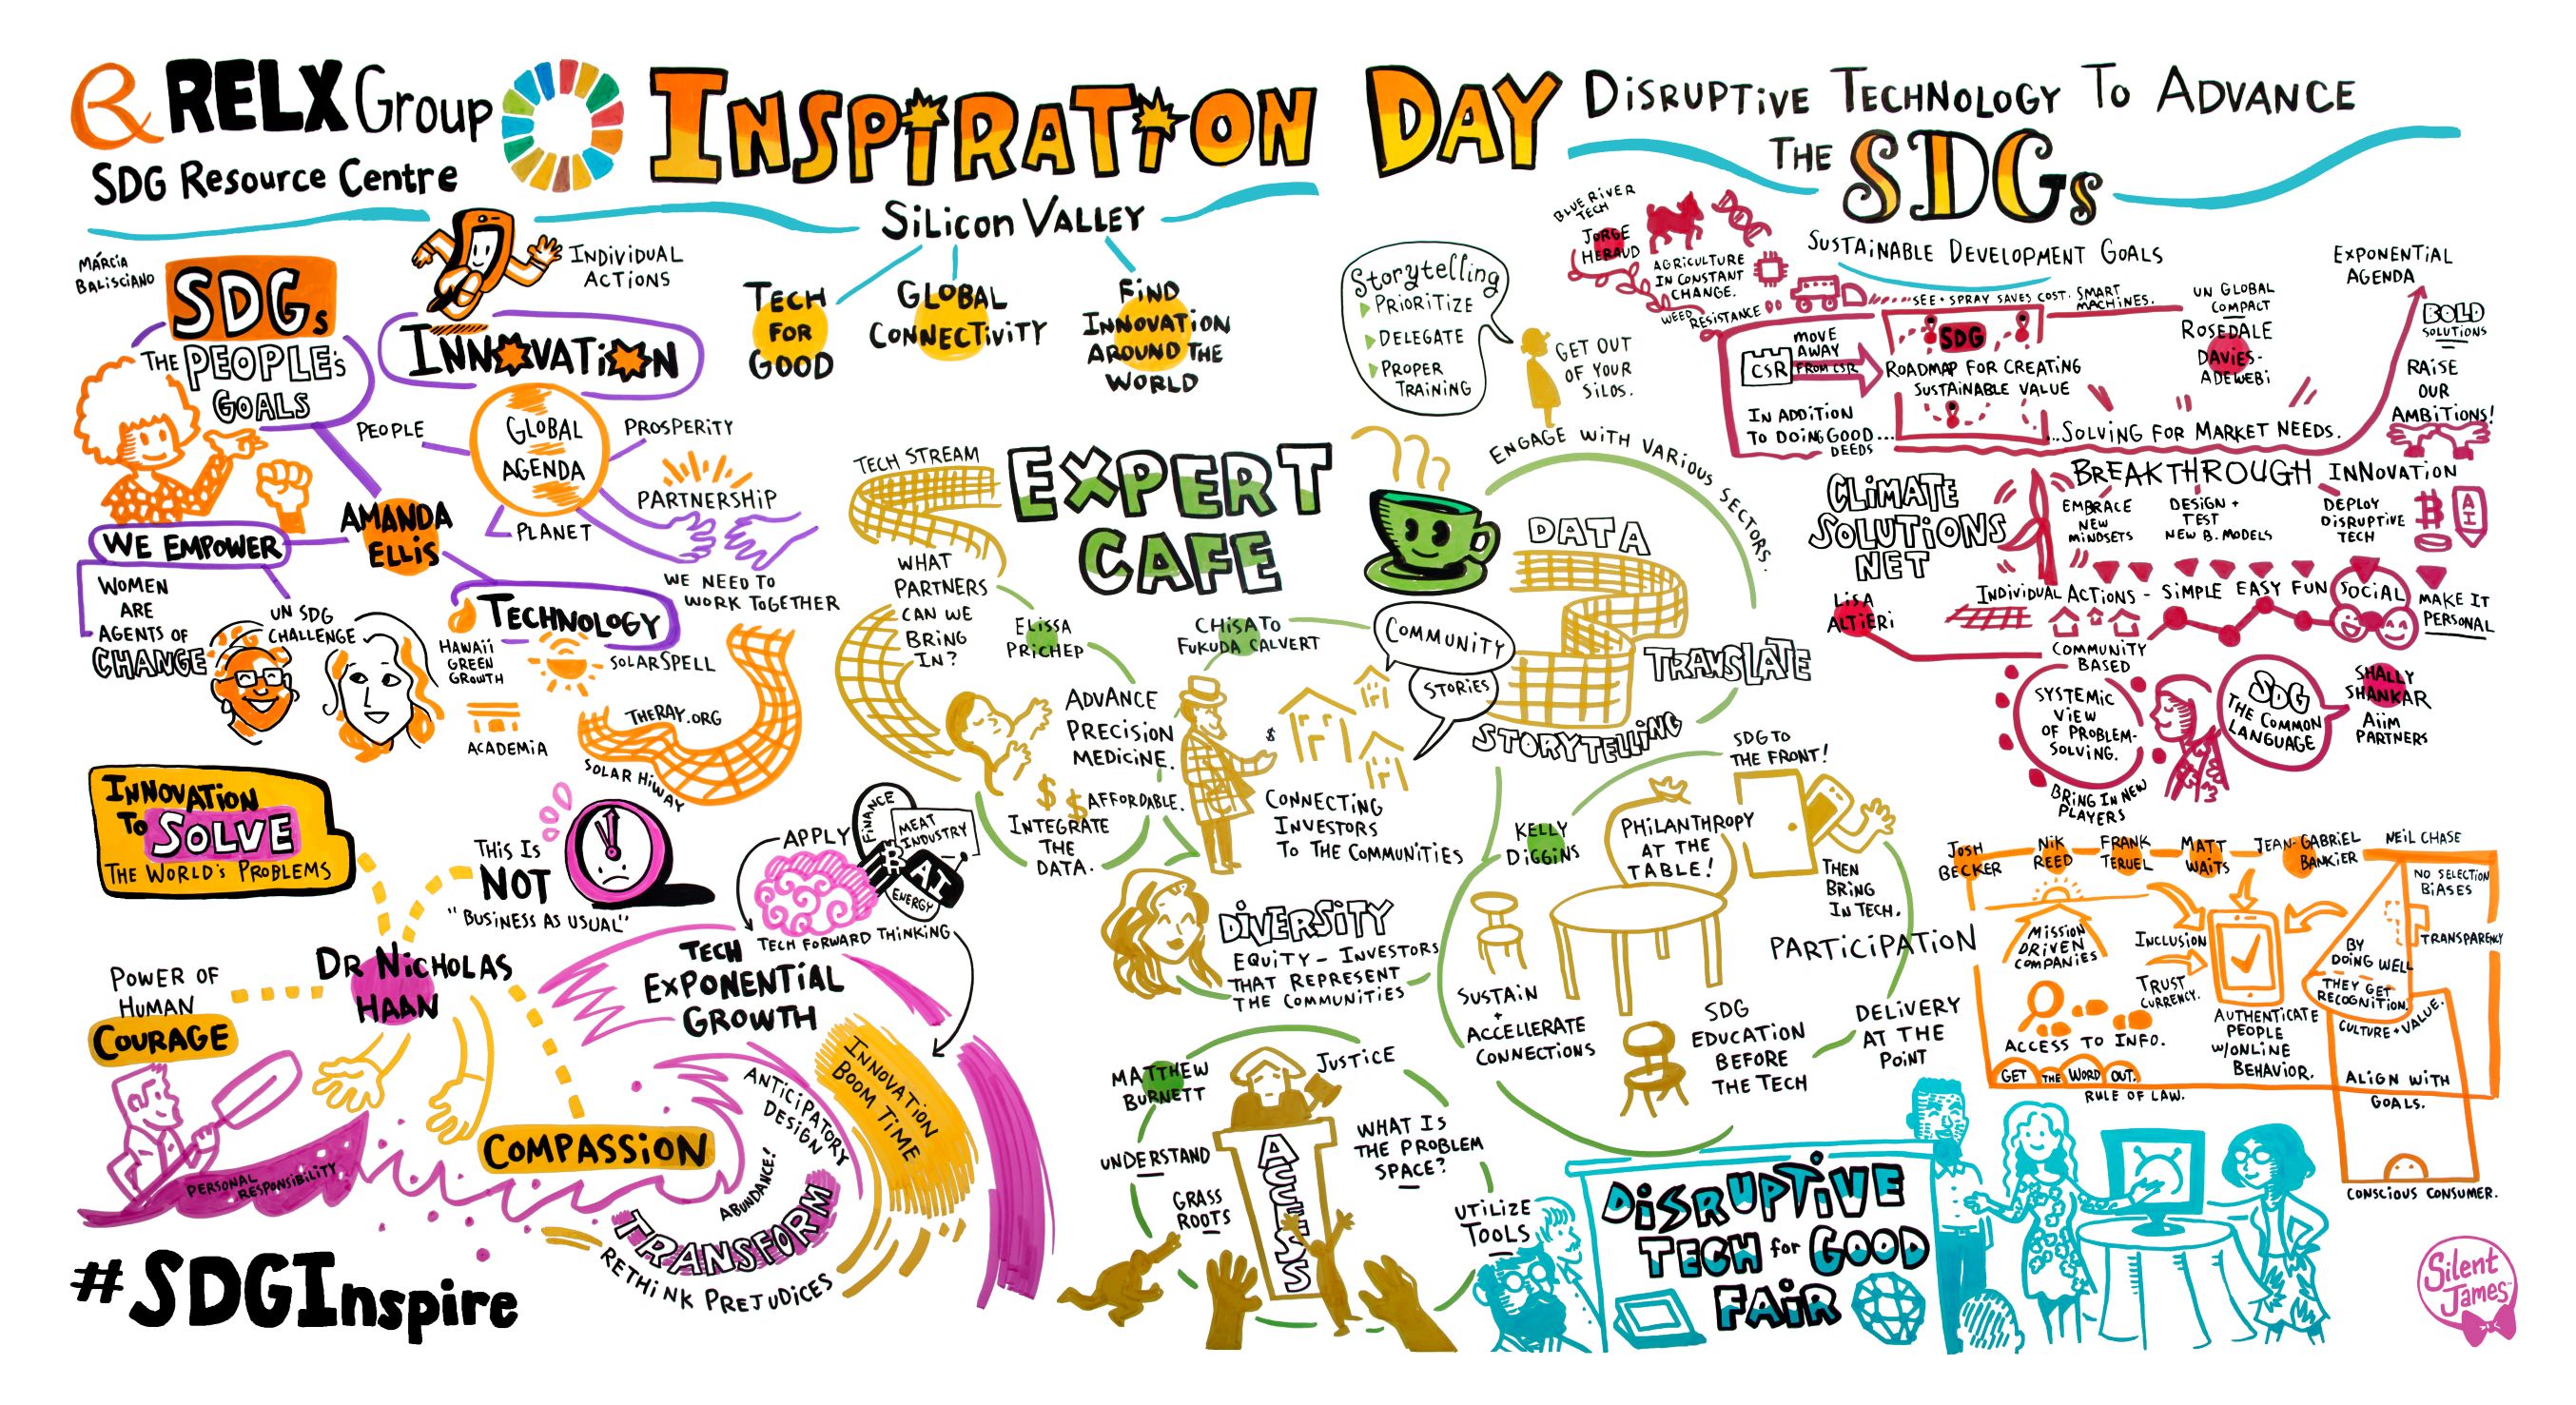 RELX Group
SDG Resource Centre
INSPIRATION DAY
DISRUPTIVE TECHNOLOGY TO ADVANCE
THE SDGs
SUSTAINABLE DEVELOPMENT GOALS
SILICON VALLEY
TECH
FOR
GOOD
GLOBAL
CONNECTIVITY
FIND
INNOVATION
AROUND THE
WORLD
MÁRCIA
BALISCIANO
SDGs
THE PEOPLE'S
GOALS
INDIVIDUAL
ACTIONS
INNOVATION
GLOBAL
AGENDA
PEOPLE
PROSPERITY
PARTNERSHIP
PLANET
WE NEED TO
WORK TOGETHER
AMANDA
ELLIS
WE EMPOWER
WOMEN
ARE
AGENTS OF
CHANGE
UN SDG
CHALLENGE
TECHNOLOGY
HAWAII
GREEN
GROWTH
SOLARSPELL
ACADEMIA
THERAY.ORG
SOLAR HIWAY
INNOVATION
TO SOLVE
THE WORLD'S PROBLEMS
THIS IS
NOT
"BUSINESS AS USUAL"
DR NICHOLAS
HAAN
POWER OF
HUMAN
COURAGE
PERSONAL
RESPONSIBILITY
COMPASSION
APPLY
FINANCE
MEAT
INDUSTRY
B
AI
ENERGY
TECH FORWARD THINKING
TECH
EXPONENTIAL
GROWTH
INNOVATION
BOOM TIME
ANTICIPATORY
DESIGN
ABUNDANCE!
TRANSFORM
RETHINK PREJUDICES
#SDGInspire
EXPERT
CAFE
TECH STREAM
WHAT
PARTNERS
CAN WE
BRING
IN?
ELISSA
PRICHEP
ADVANCE
PRECISION
MEDICINE.
$ $ AFFORDABLE.
INTEGRATE
THE
DATA.
CHISATO
FUKUDA CALVERT
$
CONNECTING
INVESTORS
TO THE COMMUNITIES
COMMUNITY
STORIES
DIVERSITY
EQUITY - INVESTORS
THAT REPRESENT
THE COMMUNITIES
Storytelling
PRIORITIZE
DELEGATE
PROPER
TRAINING
GET OUT
OF YOUR
SILOS.
ENGAGE WITH VARIOUS SECTORS.
DATA
TRANSLATE
STORYTELLING
KELLY
DIGGINS
PHILANTHROPY
AT THE
TABLE!
SDG TO
THE FRONT!
THEN
BRING
IN TECH.
PARTICIPATION
SUSTAIN
+
ACCELLERATE
CONNECTIONS
SDG
EDUCATION
BEFORE
THE TECH
DELIVERY
AT THE
POINT
MATTHEW
BURNETT
JUSTICE
UNDERSTAND
WHAT IS
THE PROBLEM
SPACE?
GRASS
ROOTS
ACCESS
UTILIZE
TOOLS
BLUE RIVER
TECH
JORGE
HERAUD
AGRICULTURE
IN CONSTANT
CHANGE.
WEED RESISTANCE
SEE + SPRAY SAVES COST. SMART
MACHINES.
CSR
MOVE
AWAY
FROM CSR
SDG
ROADMAP FOR CREATING
SUSTAINABLE VALUE
IN ADDITION
TO DOING GOOD...
DEEDS
...SOLVING FOR MARKET NEEDS.
UN GLOBAL
COMPACT
ROSEDALE
DAVIES-
ADEWEBI
EXPONENTIAL
AGENDA
BOLD
SOLUTIONS
RAISE
OUR
AMBITIONS!
BREAKTHROUGH INNOVATION
EMBRACE
NEW
MINDSETS
DESIGN +
TEST
NEW B. MODELS
DEPLOY
DISRUPTIVE
TECH
B
AI
CLIMATE
SOLUTIONS
NET
LISA
ALTIERI
INDIVIDUAL ACTIONS - SIMPLE EASY FUN SOCIAL
MAKE IT
PERSONAL
COMMUNITY
BASED
SYSTEMIC
VIEW
OF PROBLEM-
SOLVING.
BRING IN NEW
PLAYERS
SDG
THE COMMON
LANGUAGE
SHALLY
SHANKAR
AiiM
PARTNERS
JOSH
BECKER
NIK
REED
FRANK
TERUEL
MATT
WAITS
JEAN-GABRIEL
BANKIER
NEIL CHASE
MISSION
DRIVEN
COMPANIES
INCLUSION
TRUST
CURRENCY.
ACCESS TO INFO.
GET THE WORD OUT.
AUTHENTICATE
PEOPLE
W/ONLINE
BEHAVIOR.
RULE OF LAW.
NO SELECTION
BIASES
TRANSPARENCY
BY
DOING WELL
THEY GET
RECOGNITION.
CULTURE + VALUE.
ALIGN WITH
GOALS.
CONSCIOUS CONSUMER.
DISRUPTIVE
TECH for GOOD
FAIR
Silent
James